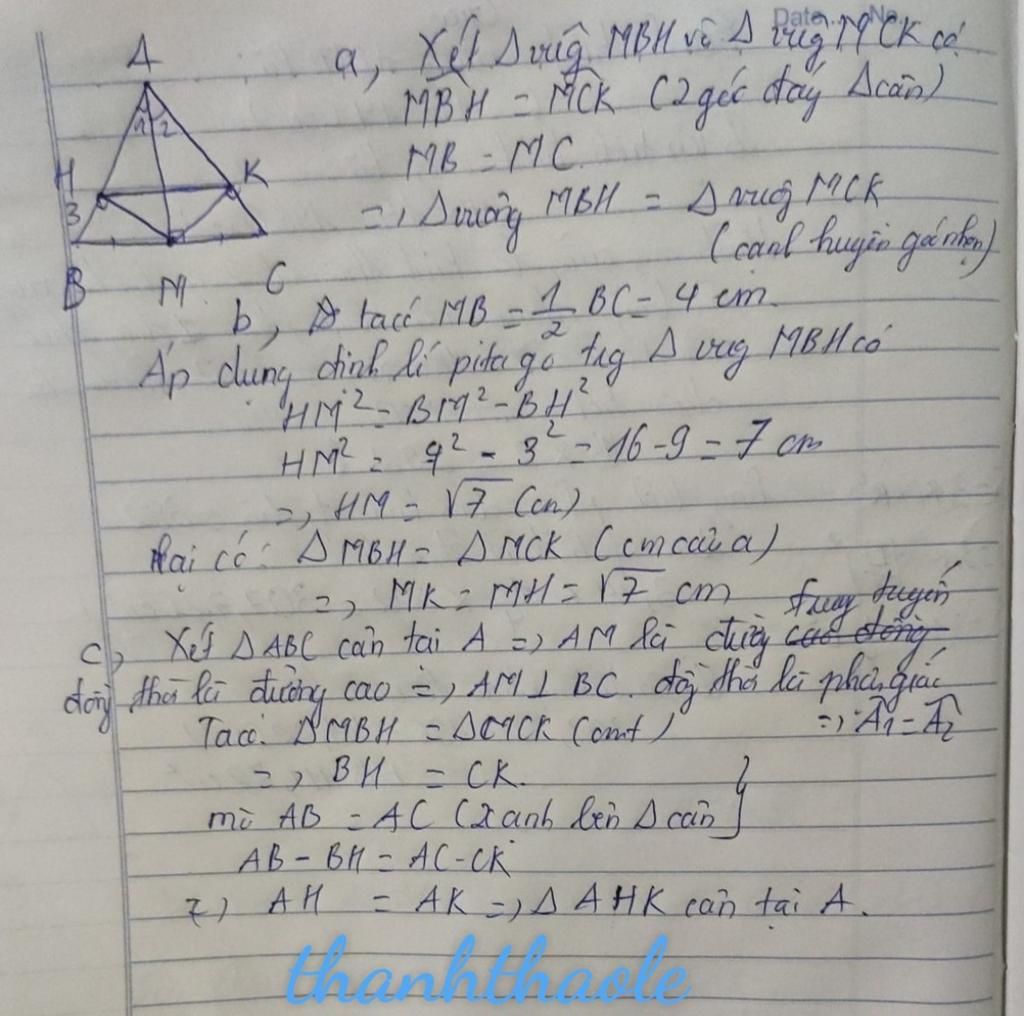 Date No
A
1 2
H
K
3
B M C
a, Xét Δ vug MBH và Δ vug MCK có
MBH = MCK (2 góc đáy Δ cân)
MB = MC.
=> Δ vuông MBH = Δ vug MCK
(cạnh huyền góc nhọn)
b, ta có MB = 1/2 BC = 4 cm.
Áp dụng định lí pitago trg Δ vug MBH có
HM² = BM² - BH²
HM² = 4² - 3² = 16 - 9 = 7 cm
=> HM = √7 (cm)
Lại có: Δ MBH = Δ MCK (cm câu a)
=> MK = MH = √7 cm
c, Xét Δ ABC cân tại A => AM là đường trung tuyến
đồng thời là đường cao => AM ⊥ BC. đồng thời là phân giác
=> Â1 = Â2
Ta có: Δ MBH = Δ MCK (cmt)
=> BH = CK.
mà AB = AC (2 cạnh bên Δ cân }
AB - BH = AC - CK
=> AH = AK => Δ AHK cân tại A.
thanhthaole